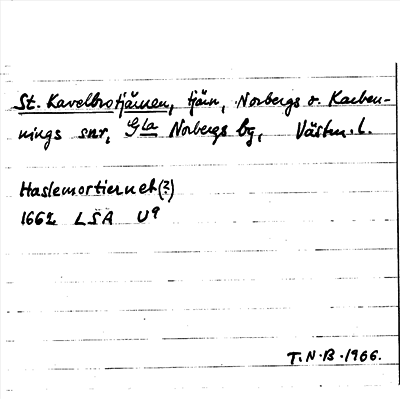 St. Kavelbrotjärnen, tjärn, Norbergs o. Karben-
nings snr, Gla Norbergs bg, Västm. l.
Haslemortiernet(?)
1662 LSA U9
T.N.B. 1966.